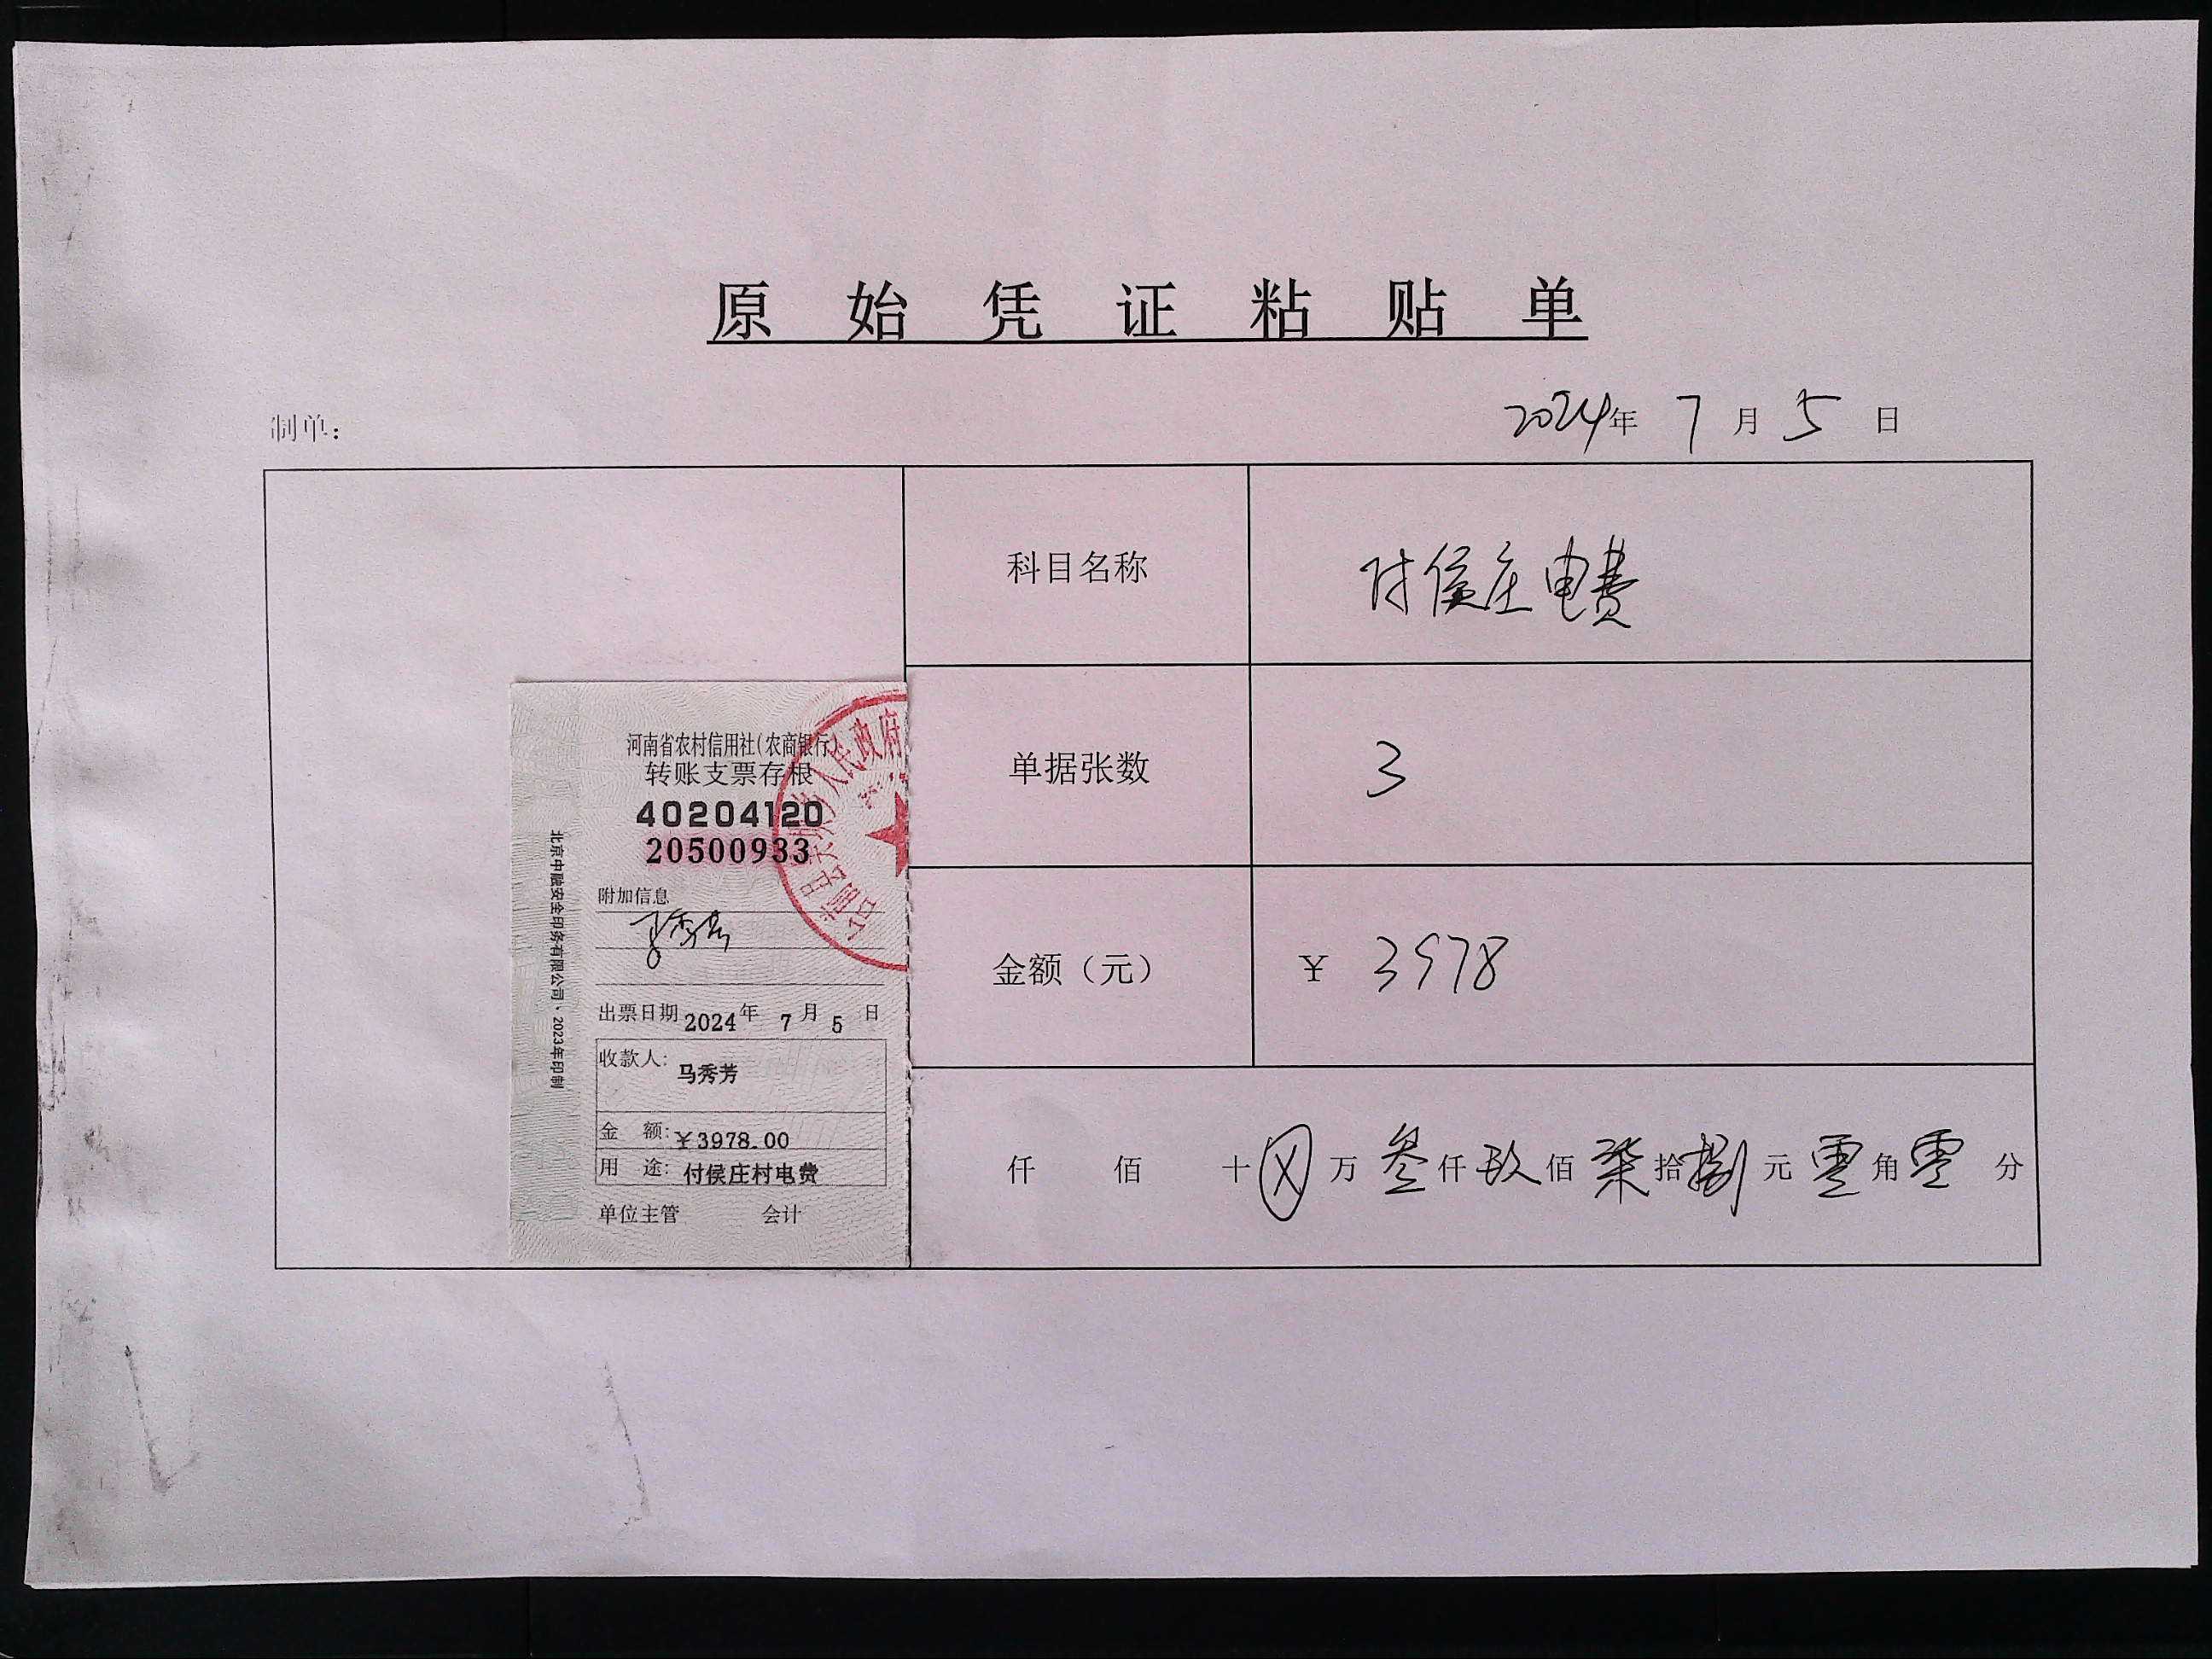 原始凭证粘贴单
制单：
2024年 7月 5日
科目名称 付侯庄电费
单据张数 3
金额（元） ¥ 3978
仟 佰 十 ⊗ 万 叁仟玖佰柒拾捌元零角零分
河南省农村信用社(农商银行)
转账支票存根
40204120
20500933
附加信息
出票日期 2024年 7月 5日
收款人: 马秀芳
金 额: ¥3978.00
用 途: 付侯庄村电费
单位主管 会计
北京中融安全印务有限公司·2023年印制
人民政府